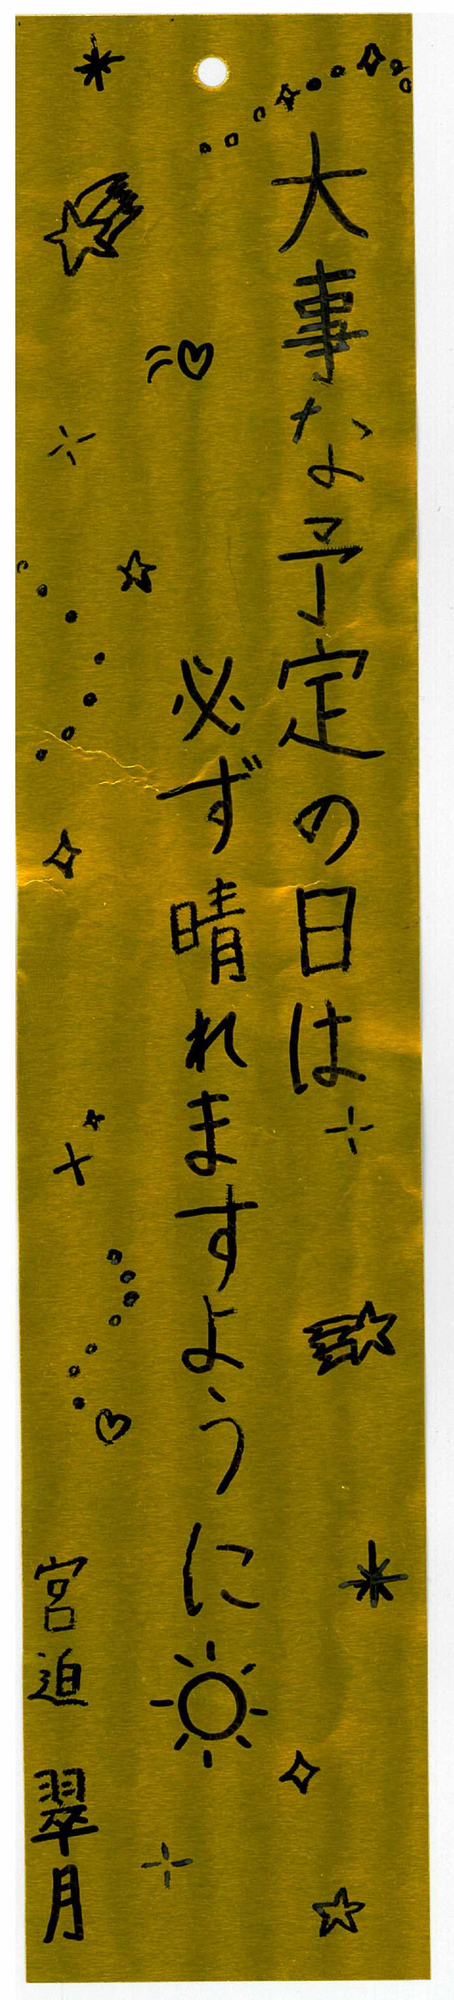 大事な予定の日は
必ず晴れますように
宮迫 翠月